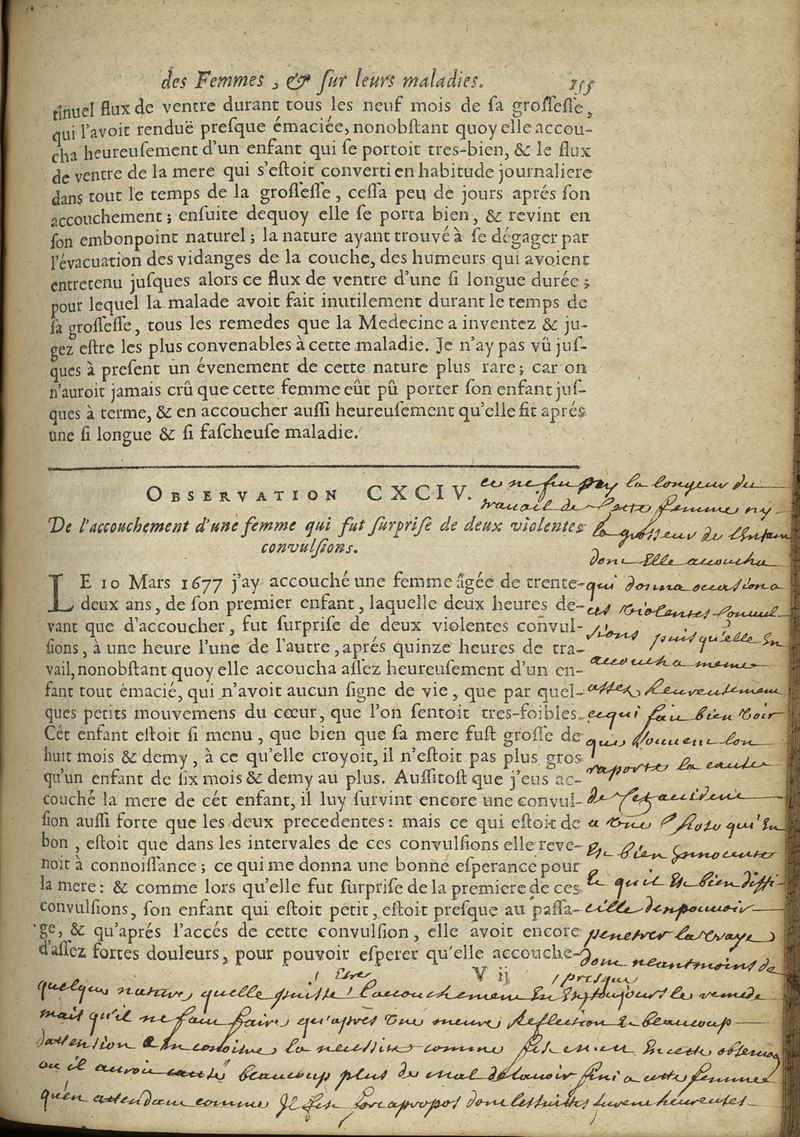 des Femmes, & ſur leurs maladies. 155
tinuel flux de ventre durant tous les neuf mois de ſa groſſeſſe,
qui l'avoit renduë preſque émaciée, nonobſtant quoy elle accou-
cha heureuſement d'un enfant qui ſe portoit tres-bien, & le flux
de ventre de la mere qui s'eſtoit converti en habitude journaliere
dans tout le temps de la groſſeſſe, ceſſa peu de jours aprés ſon
accouchement; enſuite dequoy elle ſe porta bien, & revint en
ſon embonpoint naturel; la nature ayant trouvé à ſe dégager par
l'évacuation des vidanges de la couche, des humeurs qui avoient
entretenu juſques alors ce flux de ventre d'une ſi longue durée;
pour lequel la malade avoit fait inutilement durant le temps de
ſa groſſeſſe, tous les remedes que la Medecine a inventez & ju-
gez eſtre les plus convenables à cette maladie. Je n'ay pas vû juſ-
ques à preſent un évenement de cette nature plus rare; car on
n'auroit jamais crû que cette femme eût pû porter ſon enfant juſ-
ques à terme, & en accoucher auſſi heureuſement qu'elle fit aprés
une ſi longue & ſi faſcheuſe maladie.
OBSERVATION CXCIV.
De l'accouchement d'une femme qui fut ſurpriſe de deux violentes
convulſions.
LE 10 Mars 1677 j'ay accouché une femme âgée de trente-
deux ans, de ſon premier enfant, laquelle deux heures de-
vant que d'accoucher, fut ſurpriſe de deux violentes convul-
ſions, à une heure l'une de l'autre, aprés quinze heures de tra-
vail, nonobſtant quoy elle accoucha aſſez heureuſement d'un en-
fant tout émacié, qui n'avoit aucun ſigne de vie, que par quel-
ques petits mouvemens du cœur, que l'on ſentoit tres-foibles.
Cét enfant eſtoit ſi menu, que bien que ſa mere fuſt groſſe de
huit mois & demy, à ce qu'elle croyoit, il n'eſtoit pas plus gros
qu'un enfant de ſix mois & demy au plus. Auſſitoſt que j'eus ac-
couché la mere de cét enfant, il luy ſurvint encore une convul-
ſion auſſi forte que les deux precedentes: mais ce qui eſtoit de
bon, eſtoit que dans les intervales de ces convulſions elle reve-
noit à connoiſſance; ce qui me donna une bonne eſperance pour
la mere: & comme lors qu'elle fut ſurpriſe de la premiere de ces
convulſions, ſon enfant qui eſtoit petit, eſtoit preſque au paſſa-
ge, & qu'aprés l'accés de cette convulſion, elle avoit encore
d'aſſez fortes douleurs, pour pouvoir eſperer qu'elle accouche-
V ij
ce ne fut pas la longeur du
travail de cette femme ny
la grosseur de l'enfant
dont elle accoucha
qui donna occasion a
ces violentes convul
sions puis qu'elle en
accoucha mesme
assez heureusement
ce qui fait bien voir
que souvent l'on
raporte la cause
de ses accidens
a une chose qui en
est bien innocente
et qu'il est bien diffi
cille d'en pouvoir
penetrer la vraye
dont neantmoins de
quelque nature quelle puisse estre l'accouchement en est presque toujours le remede
mais qu'il ne faut faire qu'apres une meure reflection et beaucoup
d'attention a en conoitre la necessité comme
ou il auroit beaucoup plus de mal de l'avoir fini a cette femme
qu'en attendant comme il fit fort apropos dont les suites furent heureuses